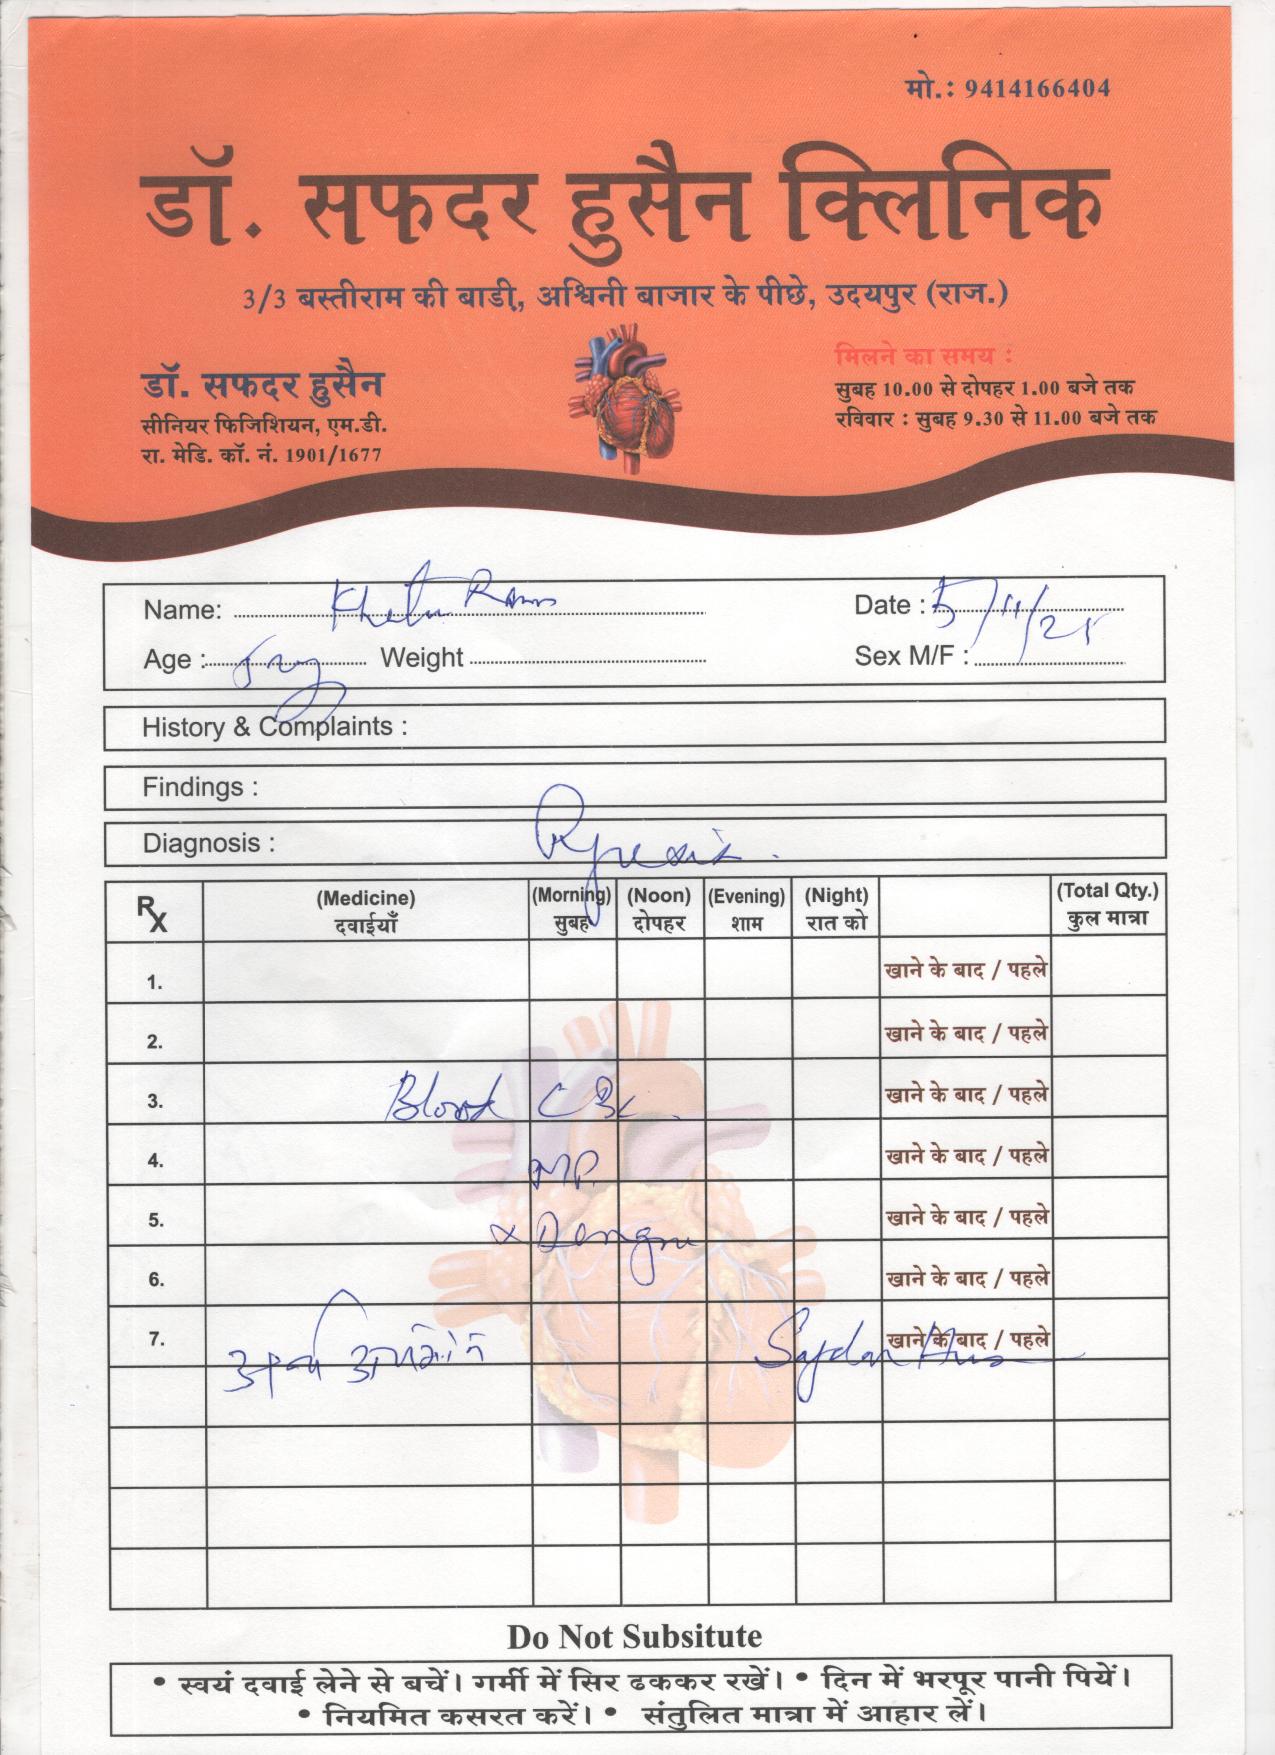 मो.: 9414166404
डॉ. सफदर हुसैन क्लिनिक
3/3 बस्तीराम की बाडी, अश्विनी बाजार के पीछे, उदयपुर (राज.)
डॉ. सफदर हुसैन
सीनियर फिजिशियन, एम.डी.
रा. मेडि. कॉ. नं. 1901/1677
मिलने का समय :
सुबह 10.00 से दोपहर 1.00 बजे तक
रविवार : सुबह 9.30 से 11.00 बजे तक
Name: Ram Date : 5/11/25
Age : Weight Sex M/F :
History & Complaints :
Findings :
Diagnosis : Pyrexia.
Rx (Medicine) (Morning) (Noon) (Evening) (Night) (Total Qty.)
दवाईयाँ सुबह दोपहर शाम रात को कुल मात्रा
1. खाने के बाद / पहले
2. खाने के बाद / पहले
3. Blood CBC. खाने के बाद / पहले
4. MP. खाने के बाद / पहले
5. Dengue खाने के बाद / पहले
6. खाने के बाद / पहले
7. Safdar खाने के बाद / पहले
Do Not Subsitute
• स्वयं दवाई लेने से बचें। गर्मी में सिर ढककर रखें। • दिन में भरपूर पानी पियें।
• नियमित कसरत करें। • संतुलित मात्रा में आहार लें।